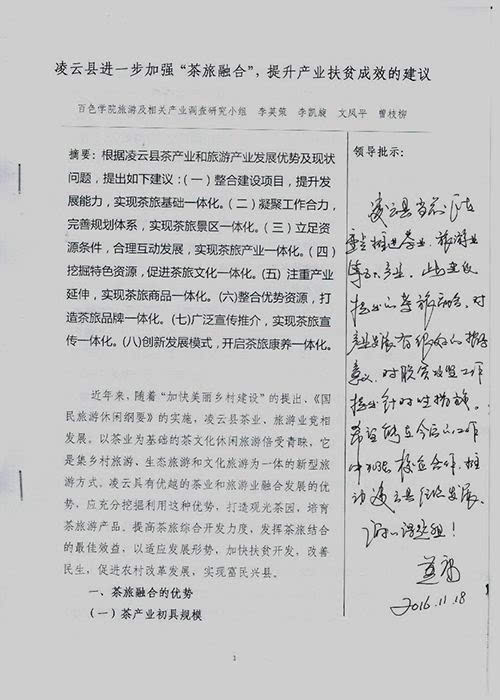 凌云县进一步加强“茶旅融合”，提升产业扶贫成效的建议
百色学院旅游及相关产业调查研究小组 李英策 李凯旋 文凤平 曾枝柳
摘要：根据凌云县茶产业和旅游产业发展优势及现状
问题，提出如下建议：(一) 整合建设项目，提升发
展能力，实现茶旅基础一体化。(二) 凝聚工作合力，
完善规划体系，实现茶旅景区一体化。(三) 立足资
源条件，合理互动发展，实现茶旅产业一体化。(四)
挖掘特色资源，促进茶旅文化一体化。(五) 注重产业
延伸，实现茶旅商品一体化。(六)整合优势资源，打
造茶旅品牌一体化。(七)广泛宣传推介，实现茶旅宣
传一体化。(八)创新发展模式，开启茶旅康养一体化。
近年来，随着“加快美丽乡村建设”的提出、《国
民旅游休闲纲要》的实施，凌云县茶业、旅游业竞相
发展。以茶业为基础的茶文化休闲旅游倍受青睐，它
是集乡村旅游、生态旅游和文化旅游为一体的新型旅
游方式。凌云具有优越的茶业和旅游业融合发展的优
势，应充分挖掘利用这种优势，打造观光茶园，培育
茶旅游产品。提高茶旅综合开发力度，发挥茶旅结合
的最佳效益，以适应发展形势，加快扶贫开发，改善
民生，促进农村改革发展，实现富民兴县。
一、茶旅融合的优势
(一) 茶产业初具规模
1
领导批示：
凌云县
推进茶业、旅游业
产业，此建议
提出的茶旅融合，对
产业发展有很好的指导
意义，对脱贫攻坚工作
提出针对性措施。
希望能在今后的工作
中加强校企合作，推
动凌云县经济发展。
！
2016.11.18